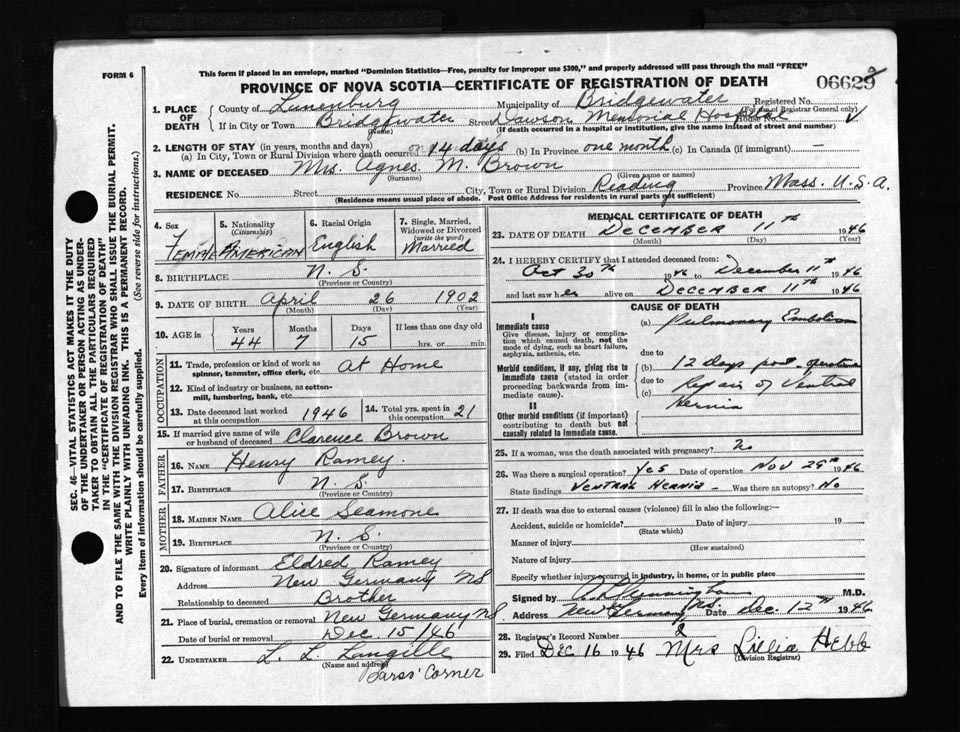 FORM 6
This form if placed in an envelope, marked "Dominion Statistics—Free, penalty for improper use $300," and properly addressed will pass through the mail "FREE"
PROVINCE OF NOVA SCOTIA—CERTIFICATE OF REGISTRATION OF DEATH
06629
1. PLACE OF DEATH
County of Lunenburg Municipality of Bridgewater Registered No.
(For use of Registrar General only)
If in City or Town Bridgewater Street Dawson Memorial Hospital House No.
(Name) (If death occurred in a hospital or institution, give the name instead of street and number)
2. LENGTH OF STAY (in years, months and days)
(a) In City, Town or Rural Division where death occurred 14 days (b) In Province one month (c) In Canada (if immigrant) —
3. NAME OF DECEASED Mrs. Agnes M. Brown
(Surname) (Given name or names)
RESIDENCE No. Street City, Town or Rural Division Reading Province Mass. U.S.A.
(Residence means usual place of abode. Post Office Address for residents in rural parts not sufficient)
4. Sex Female
5. Nationality (Citizenship) American
6. Racial Origin English
7. Single, Married, Widowed or Divorced (write the word) Married
8. BIRTHPLACE N. S.
(Province or Country)
9. DATE OF BIRTH April 26 1902
(Month) (Day) (Year)
10. AGE in Years Months Days If less than one day old
44 7 15 hrs. or min.
OCCUPATION
11. Trade, profession or kind of work as spinner, teamster, office clerk, etc. At Home
12. Kind of industry or business, as cotton-mill, lumbering, bank, etc.
13. Date deceased last worked at this occupation 1946
14. Total yrs. spent in this occupation 21
15. If married give name of wife or husband of deceased Clarence Brown
FATHER
16. NAME Henry Ramey.
17. BIRTHPLACE N. S.
(Province or Country)
MOTHER
18. MAIDEN NAME Alice Seamone
19. BIRTHPLACE N. S.
(Province or Country)
20. Signature of informant Eldred Ramey
Address New Germany NS
Relationship to deceased Brother
21. Place of burial, cremation or removal New Germany NS
Date of burial or removal Dec. 15/46
22. UNDERTAKER L. L. Langille
(Name and address)
Barss' Corner
MEDICAL CERTIFICATE OF DEATH
23. DATE OF DEATH December 11th 1946
(Month) (Day) (Year)
24. I HEREBY CERTIFY that I attended deceased from:
Oct 30th 1946 to December 11th 1946
and last saw her alive on December 11th 1946
CAUSE OF DEATH
I
Immediate cause
Give disease, injury or complication which caused death, not the mode of dying, such as heart failure, asphyxia, asthenia, etc.
(a) Pulmonary Embolism
due to
Morbid conditions, if any, giving rise to immediate cause (stated in order proceeding backwards from immediate cause).
12 days post-operative
due to
(c) Repair of Ventral Hernia
II
Other morbid conditions (if important) contributing to death but not causally related to immediate cause.
25. If a woman, was the death associated with pregnancy? No
26. Was there a surgical operation? Yes Date of operation Nov 29th 1946
State findings Ventral Hernia - Was there an autopsy? No
27. If death was due to external causes (violence) fill in also the following:—
Accident, suicide or homicide? Date of injury 19
(State which)
Manner of injury
(How sustained)
Nature of injury
Specify whether injury occurred in industry, in home, or in public place
Signed by M.D.
Address New Germany NS. Date Dec. 12th 1946
28. Registrar's Record Number 2
29. Filed Dec 16 1946 Mrs Lillia Hebb
(Division Registrar)
SEC. 46—VITAL STATISTICS ACT MAKES IT THE DUTY
OF THE UNDERTAKER OR PERSON ACTING AS UNDER-
TAKER TO OBTAIN ALL THE PARTICULARS REQUIRED
IN THE "CERTIFICATE OF REGISTRATION OF DEATH"
AND TO FILE THE SAME WITH THE DIVISION REGISTRAR WHO SHALL ISSUE THE BURIAL PERMIT.
WRITE PLAINLY WITH UNFADING INK. THIS IS A PERMANENT RECORD.
Every item of information should be carefully supplied. (See reverse side for instructions.)